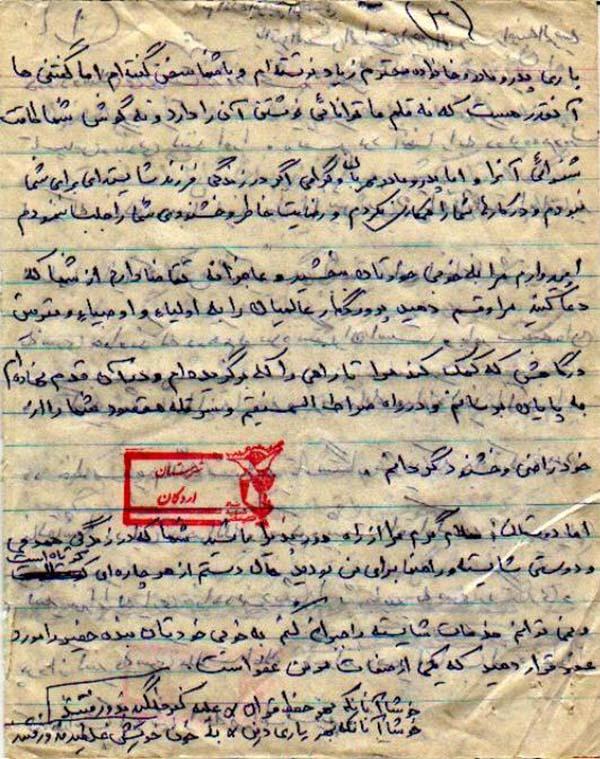 (۳)
باری پدر و مادر و خانواده محترم زیاد نوشته ام و با شما سخن گفته ام اما گفتنی ها
آنقدر هست که نه قلم ما توانائی نوشتن آن را دارد و نه گوش شما طاقت
شنوائی آنرا و اما پدر و مادر مهربان و گرامی اگر در زندگی فرزند شایسته ای برای شما
نبودم و در کارها شما را همکاری نکردم و رضایت خاطر و خشنودی شما را جلب ننمودم
امیدوارم مرا به خوبی خود تان ببخشید و عاجزانه تقاضا دارم از شما که
دعا کنید مرا و قسم دهید پروردگار عالمیان را به اولیاء و اوصیاء و مقربین
درگاهش که کمک کند مرا تا راهی را که برگزیده ام و در آن قدم نهاده ام
به پایان برسانم و در راه صراط المستقیم و سر قله مقصود شما را از
خود راضی و خشنود گردانم .
شهرستان
اردکان
اما دوستان : سلام گرم مرا از راه دور پذیرا باشید شما که در زندگی
و دوستی شایسته و راهنما برای من بودید حال دستم از هر چاره ای کوتاه است
و نمی توانم زحمات شایسته را جبران کنم به خوبی خودتان بنده حقیر را مورد
عفو قرار دهید که یکی از صفات مومن عفو است .
خوشا آنانکه بهر حفظ قرآن
خوشا آنانکه بهر یاری دین به خون خویشتن غلطیدند و رفتند